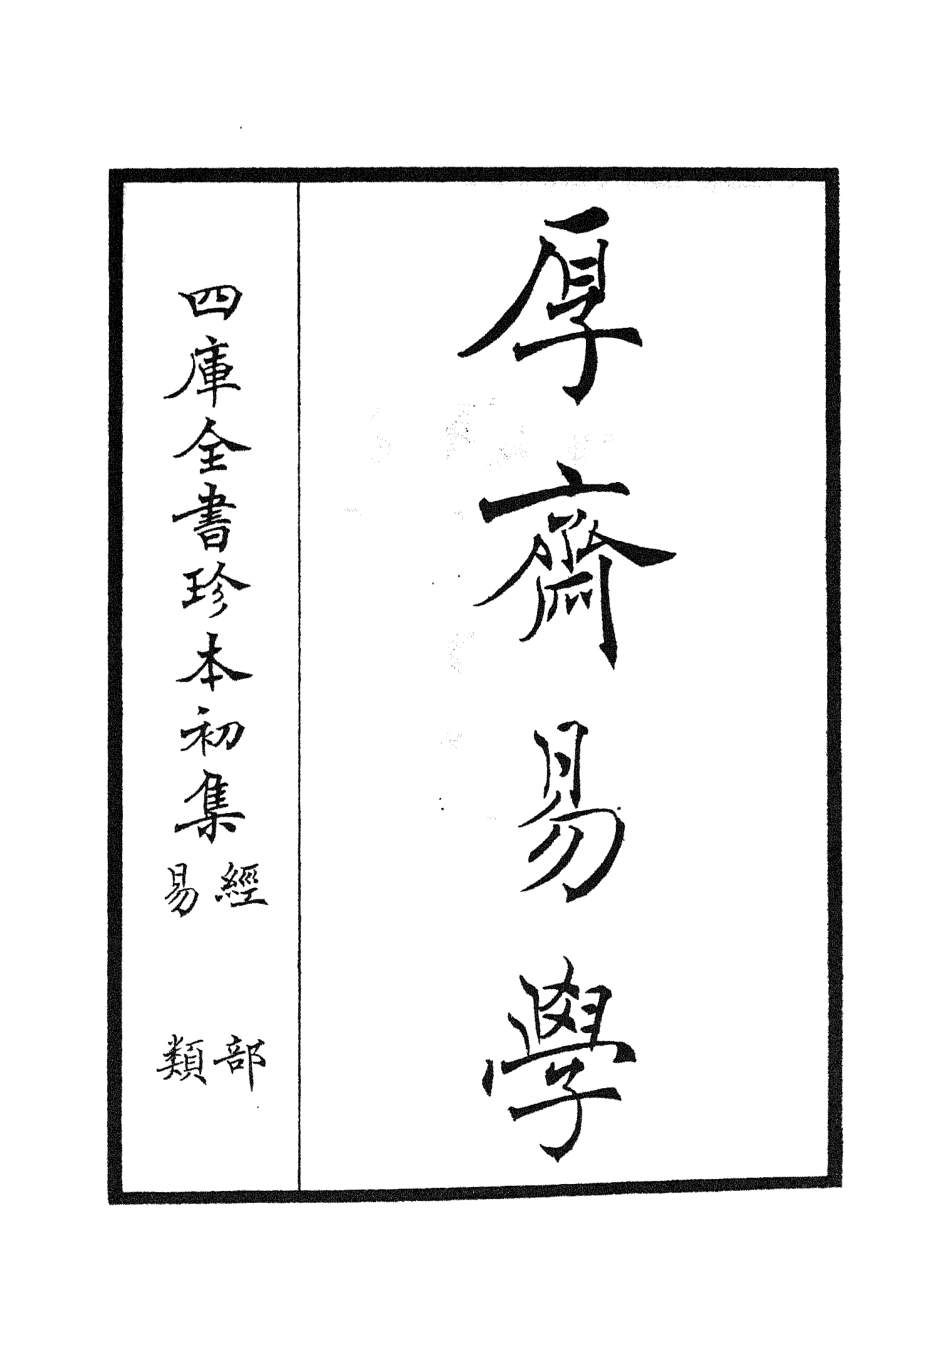 厚齋易學
四庫全書珍本初集
經部
易類